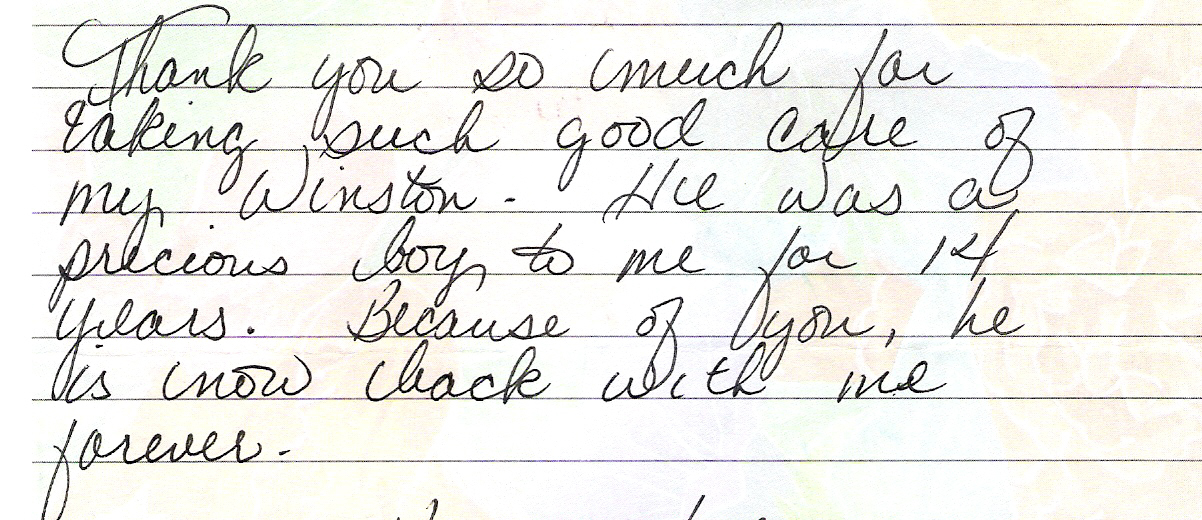 Thank you so much for
taking such good care of
my Winston. He was a
precious boy to me for 14
years. Because of you, he
is now back with me
forever.